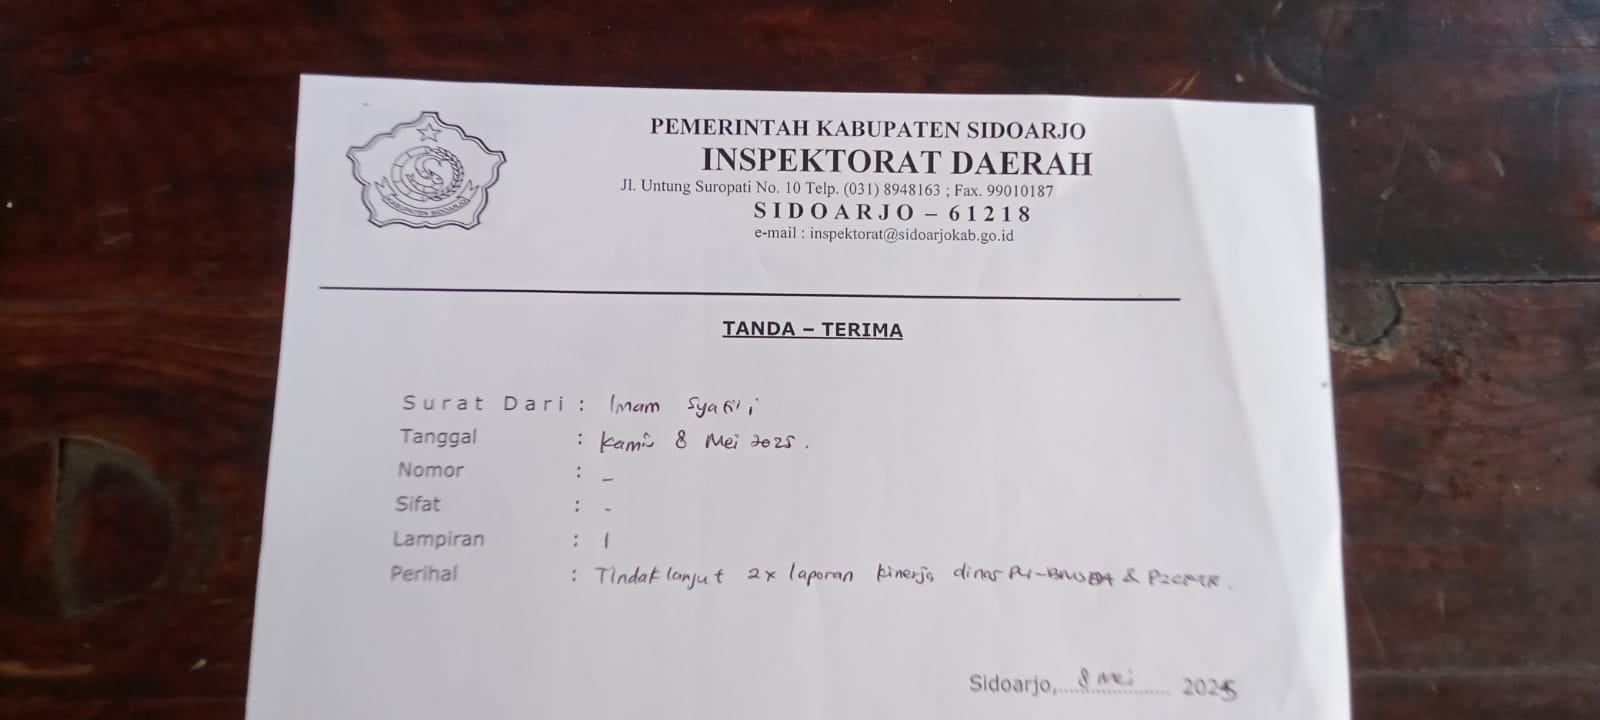 PEMERINTAH KABUPATEN SIDOARJO
INSPEKTORAT DAERAH
Jl. Untung Suropati No. 10 Telp. (031) 8948163 ; Fax. 99010187
SIDOARJO – 61218
e-mail : inspektorat@sidoarjokab.go.id
KABUPATEN SIDOARJO
TANDA – TERIMA
Surat Dari : Imam Syafi'i
Tanggal : Kamis 8 Mei 2025.
Nomor : -
Sifat : -
Lampiran : 1
Perihal : Tindak lanjut 2x laporan kinerja dinas PU-BMSDA &
Sidoarjo, 8 Mei 2025